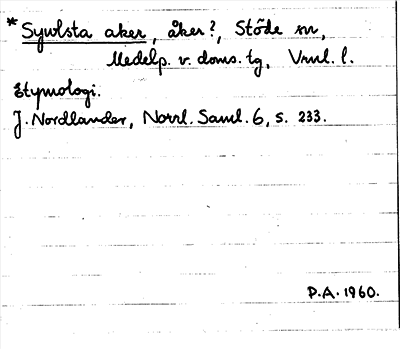 *Sywlsta aker, åker?, Stöde sn,
Medelp. v. doms. tg, Vrnl. l.
Etymologi.
J. Nordlander, Norrl. Saml. 6, s. 233.
P.A. 1960.